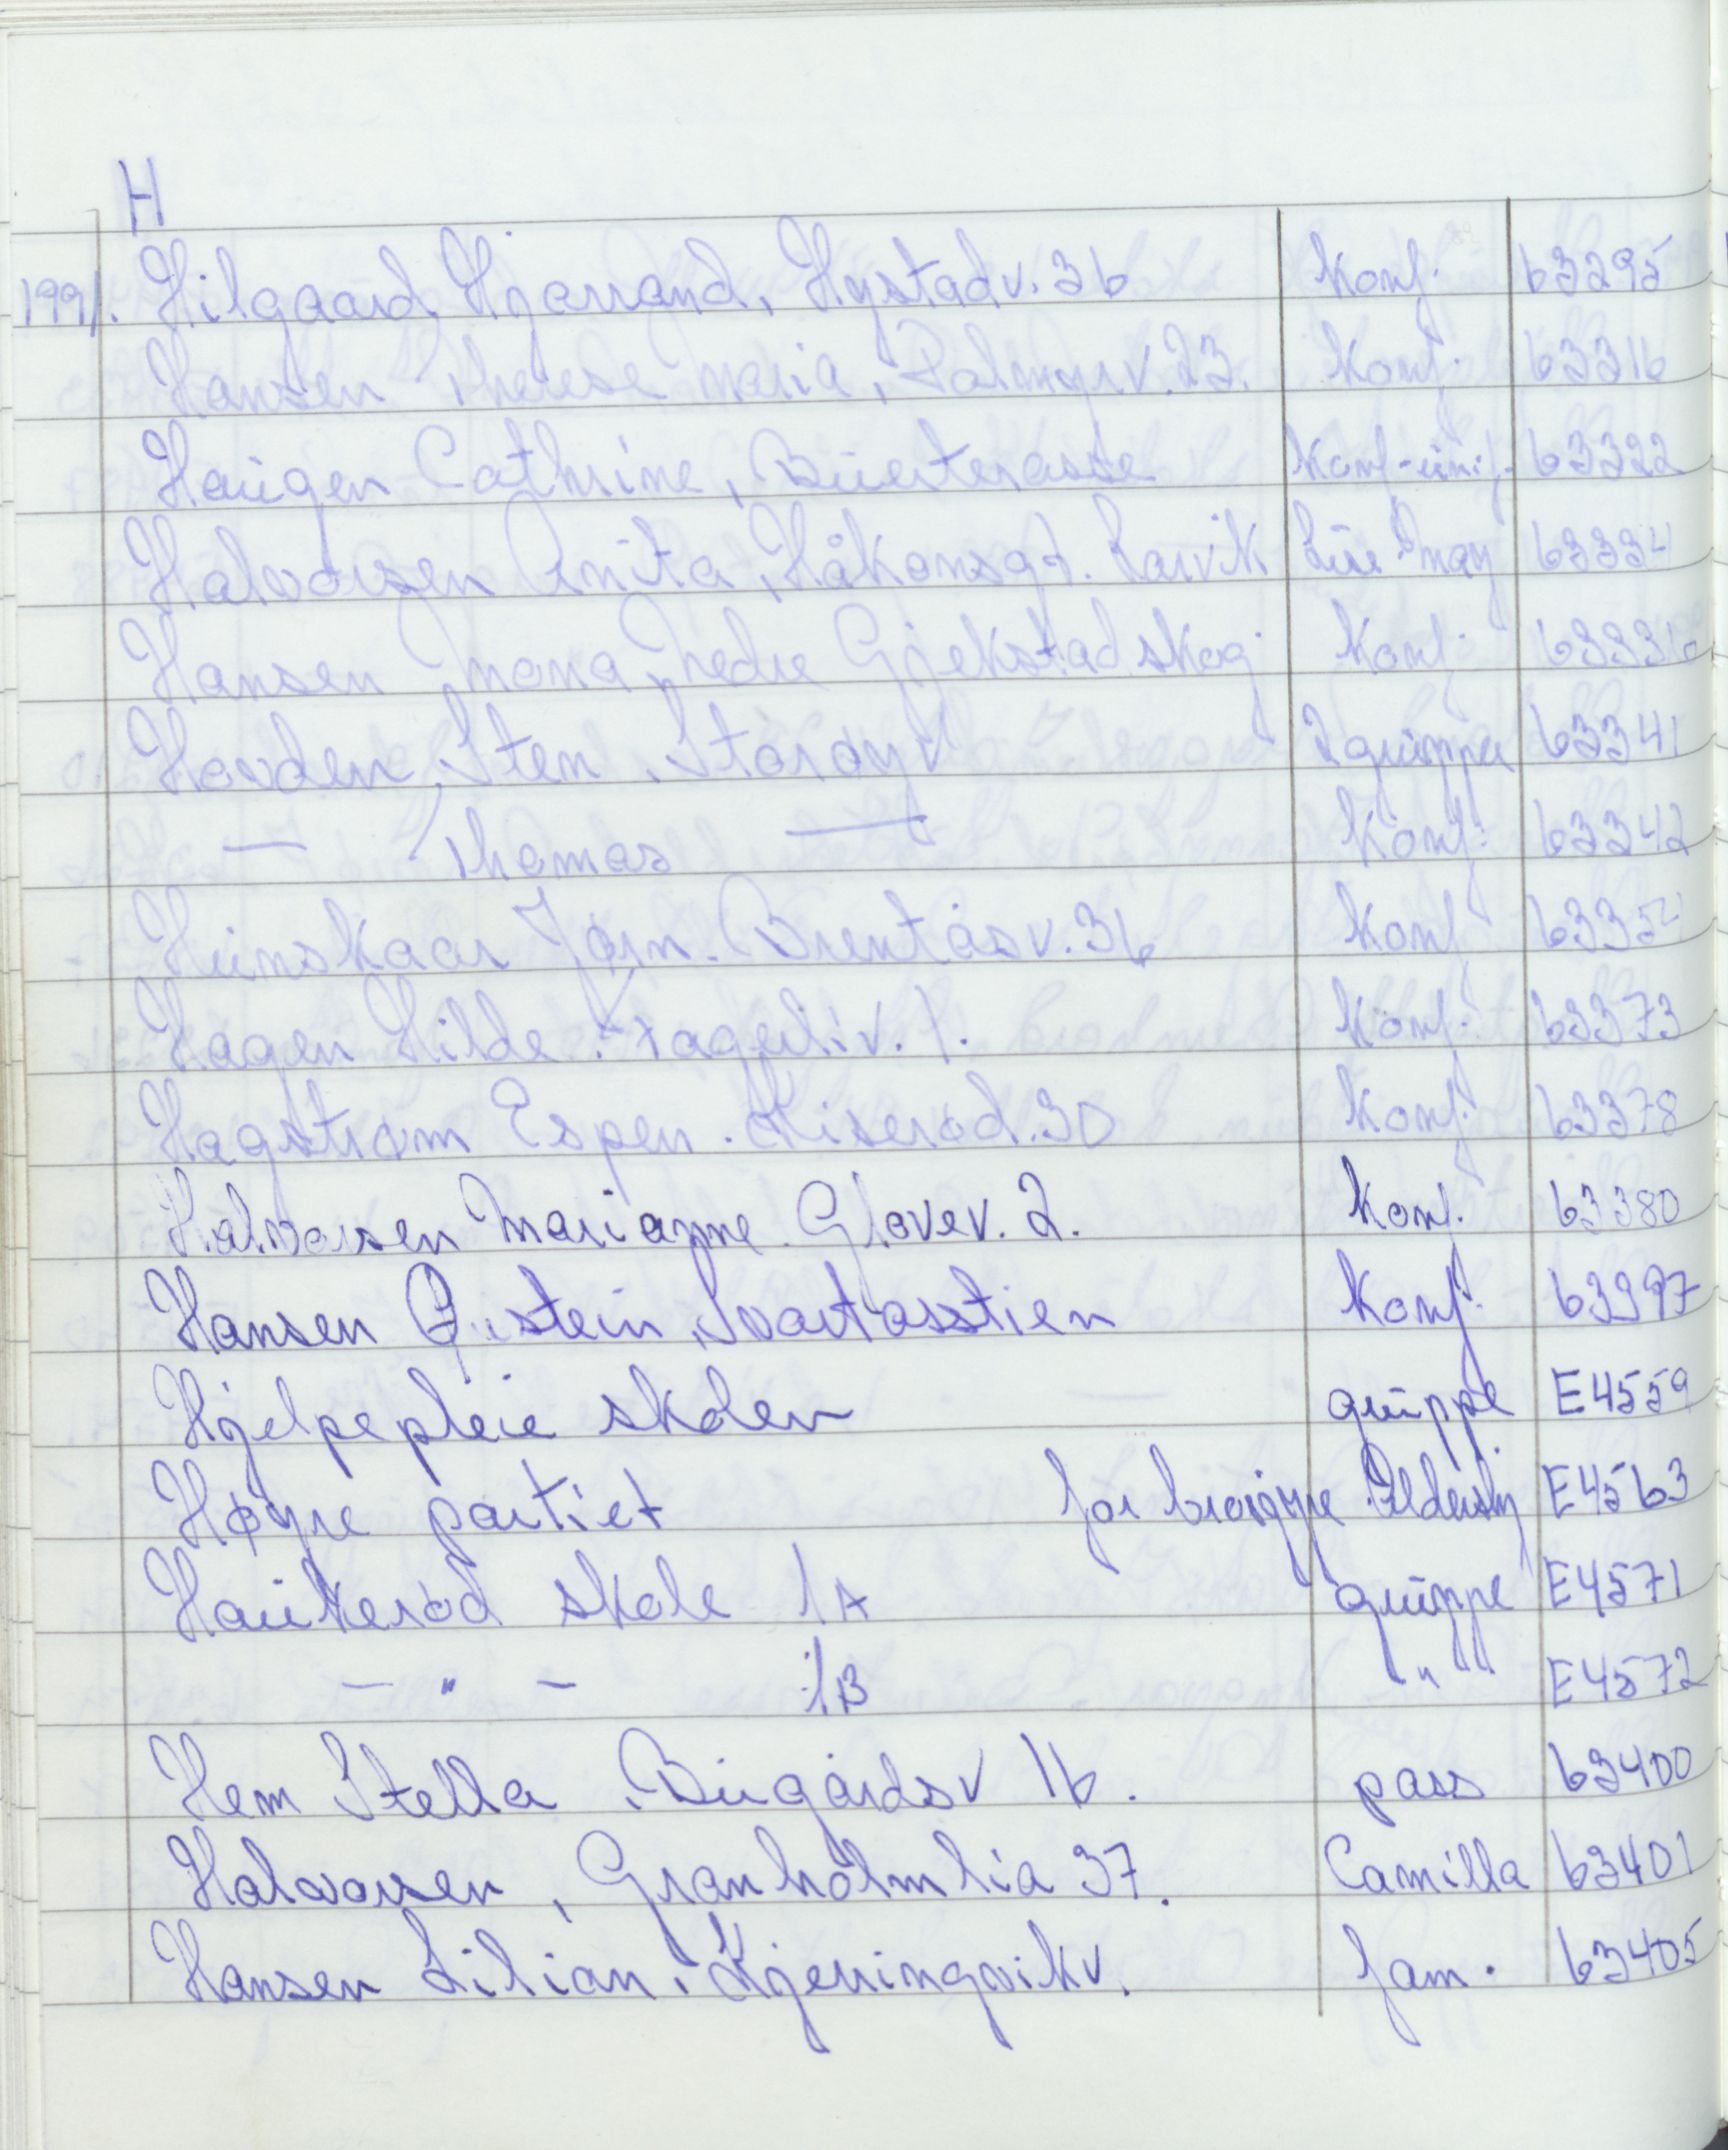 H
1991. Hilgaard Hjarrand, Hystadv. 36 Konf. 63295
Hansen Therese Maria, Palmyrv. 23. Konf. 63316
Haugen Cathrine, Bueterasse Konf-unif. 63322
Halvorsen Anita, Håkonsgt. Larvik Liv May 63334
Hansen Mona, Nedre Gjekstad skog Konf.
Hovden, Sten, Storøyv 2 grupper 63341
— Thomas — Konf. 63342
Hunskaar Jørn. Brentåsv. 36 Konf
Hagen Hilde. Fagerliv. 1. Konf. 63373
Hagstrøm Espen. Miserød. 30 Konf. 63378
Halvorsen Marianne. Gløvev. 2. Konf. 63380
Hansen Øistein, Svartåsstien Konf. 63397
Hjelpepleie skolen gruppe E4559
Høyre partiet for brosjyre E4563
Haukerød skole 1A gruppe E4571
— " — 1B " E4572
Hem Stella, Bugårdsv 16. pass 63400
Halvorsen, Granholmlia 37. Camilla 63401
Hansen Lilian, Kjerringvikv. fam. 63405